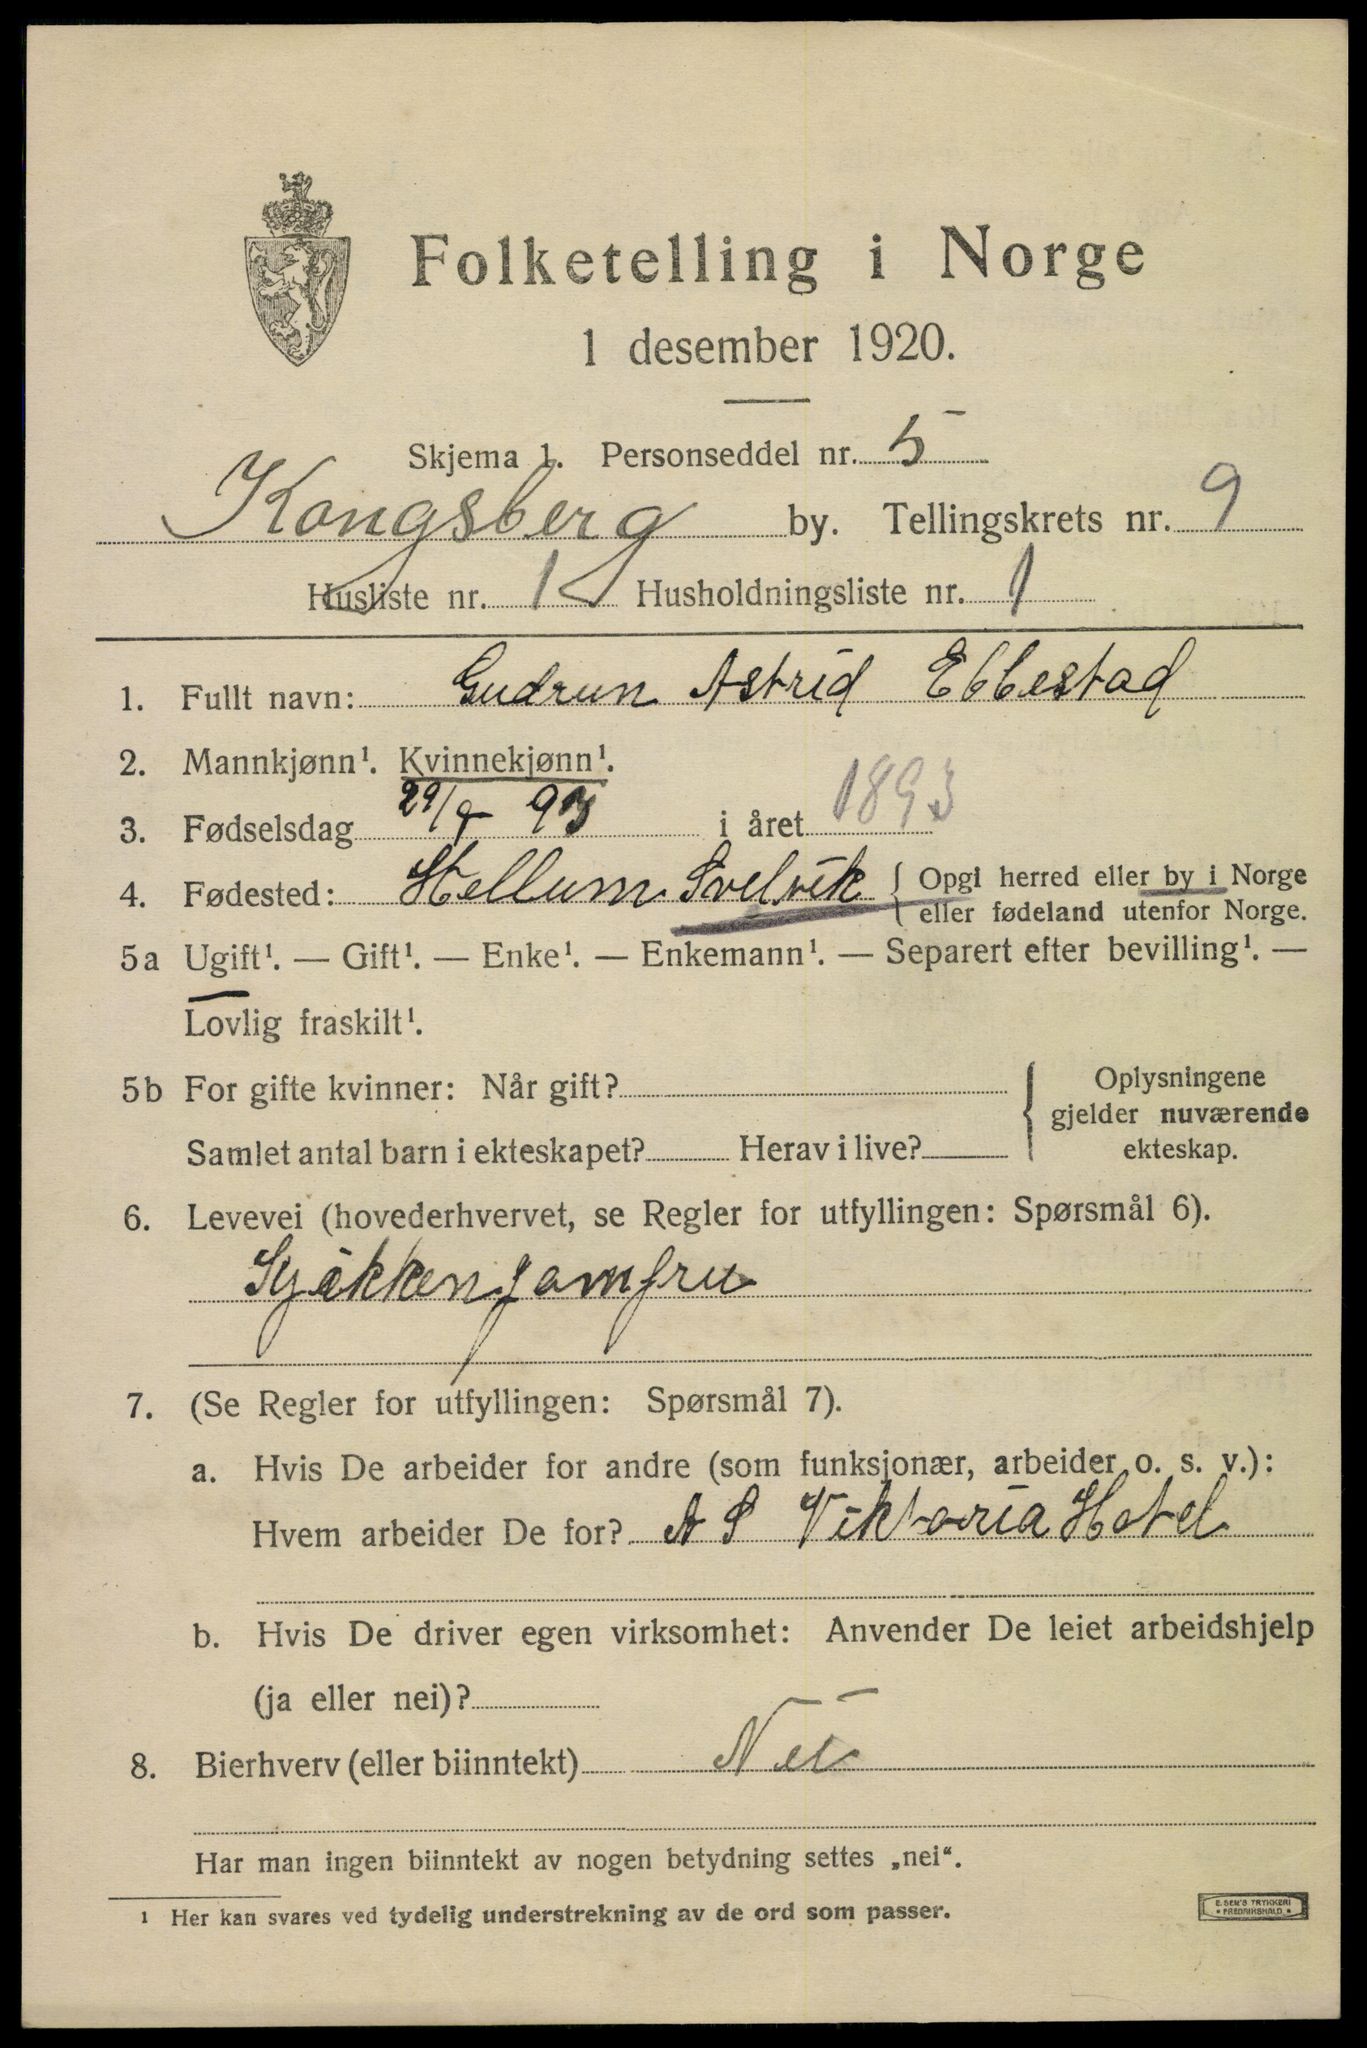 Folketelling i Norge
1 desember 1920.
Skjema 1. Personseddel nr. 5
Kongsberg by. Tellingskrets nr. 9
Husliste nr. 1 Husholdningsliste nr. 1
1. Fullt navn: Gudrun Astrid Ebbestad
2. Mannkjønn¹. Kvinnekjønn¹.
3. Fødselsdag 29/9 93 i året 1893
4. Fødested: Hellum Svelvik { Opgi herred eller by i Norge
eller fødeland utenfor Norge.
5a Ugift¹. — Gift¹. — Enke¹. — Enkemann¹. — Separert efter bevilling¹. —
Lovlig fraskilt¹.
5b For gifte kvinner: Når gift? { Oplysningene
gjelder nuværende
Samlet antal barn i ekteskapet? Herav i live? ekteskap.
6. Levevei (hovederhvervet, se Regler for utfyllingen: Spørsmål 6).
Kjøkkenjomfru
7. (Se Regler for utfyllingen: Spørsmål 7).
a. Hvis De arbeider for andre (som funksjonær, arbeider o. s. v.):
Hvem arbeider De for? A S Viktoria Hotel
b. Hvis De driver egen virksomhet: Anvender De leiet arbeidshjelp
(ja eller nei)?
8. Bierhverv (eller biinntekt) Nei
Har man ingen biinntekt av nogen betydning settes „nei“.
¹ Her kan svares ved tydelig understrekning av de ord som passer.
E. SEM'S TRYKKERI
* FREDRIKSHALD *